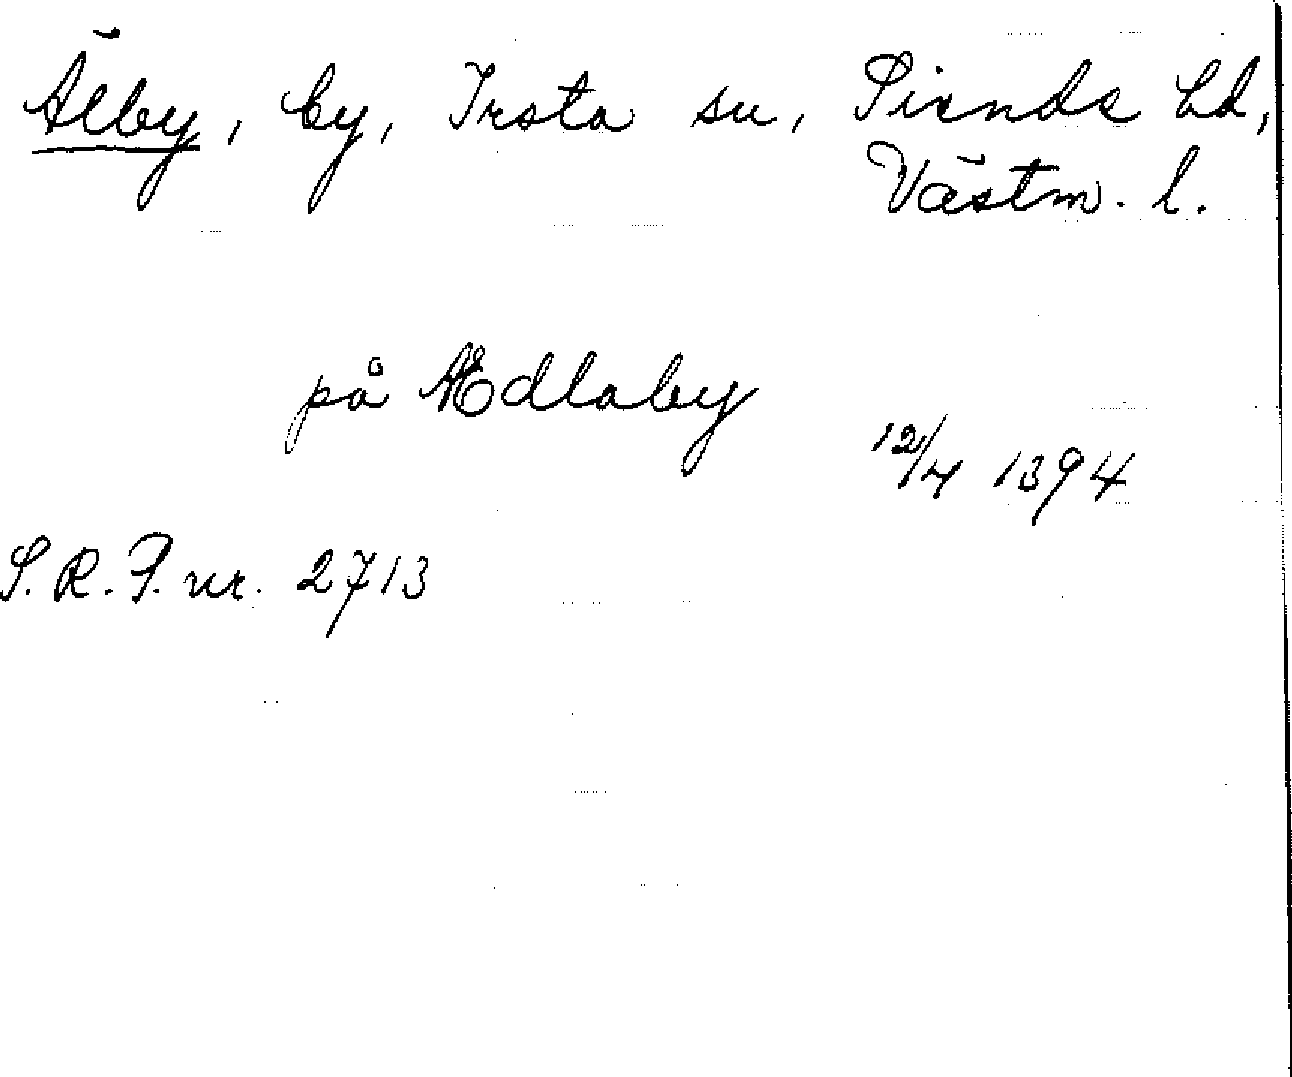 Älby, by, Irsta sn, Siende hd,
Västm. l.
på Ædlaby
12/4 1394
S.R.P. nr. 2713